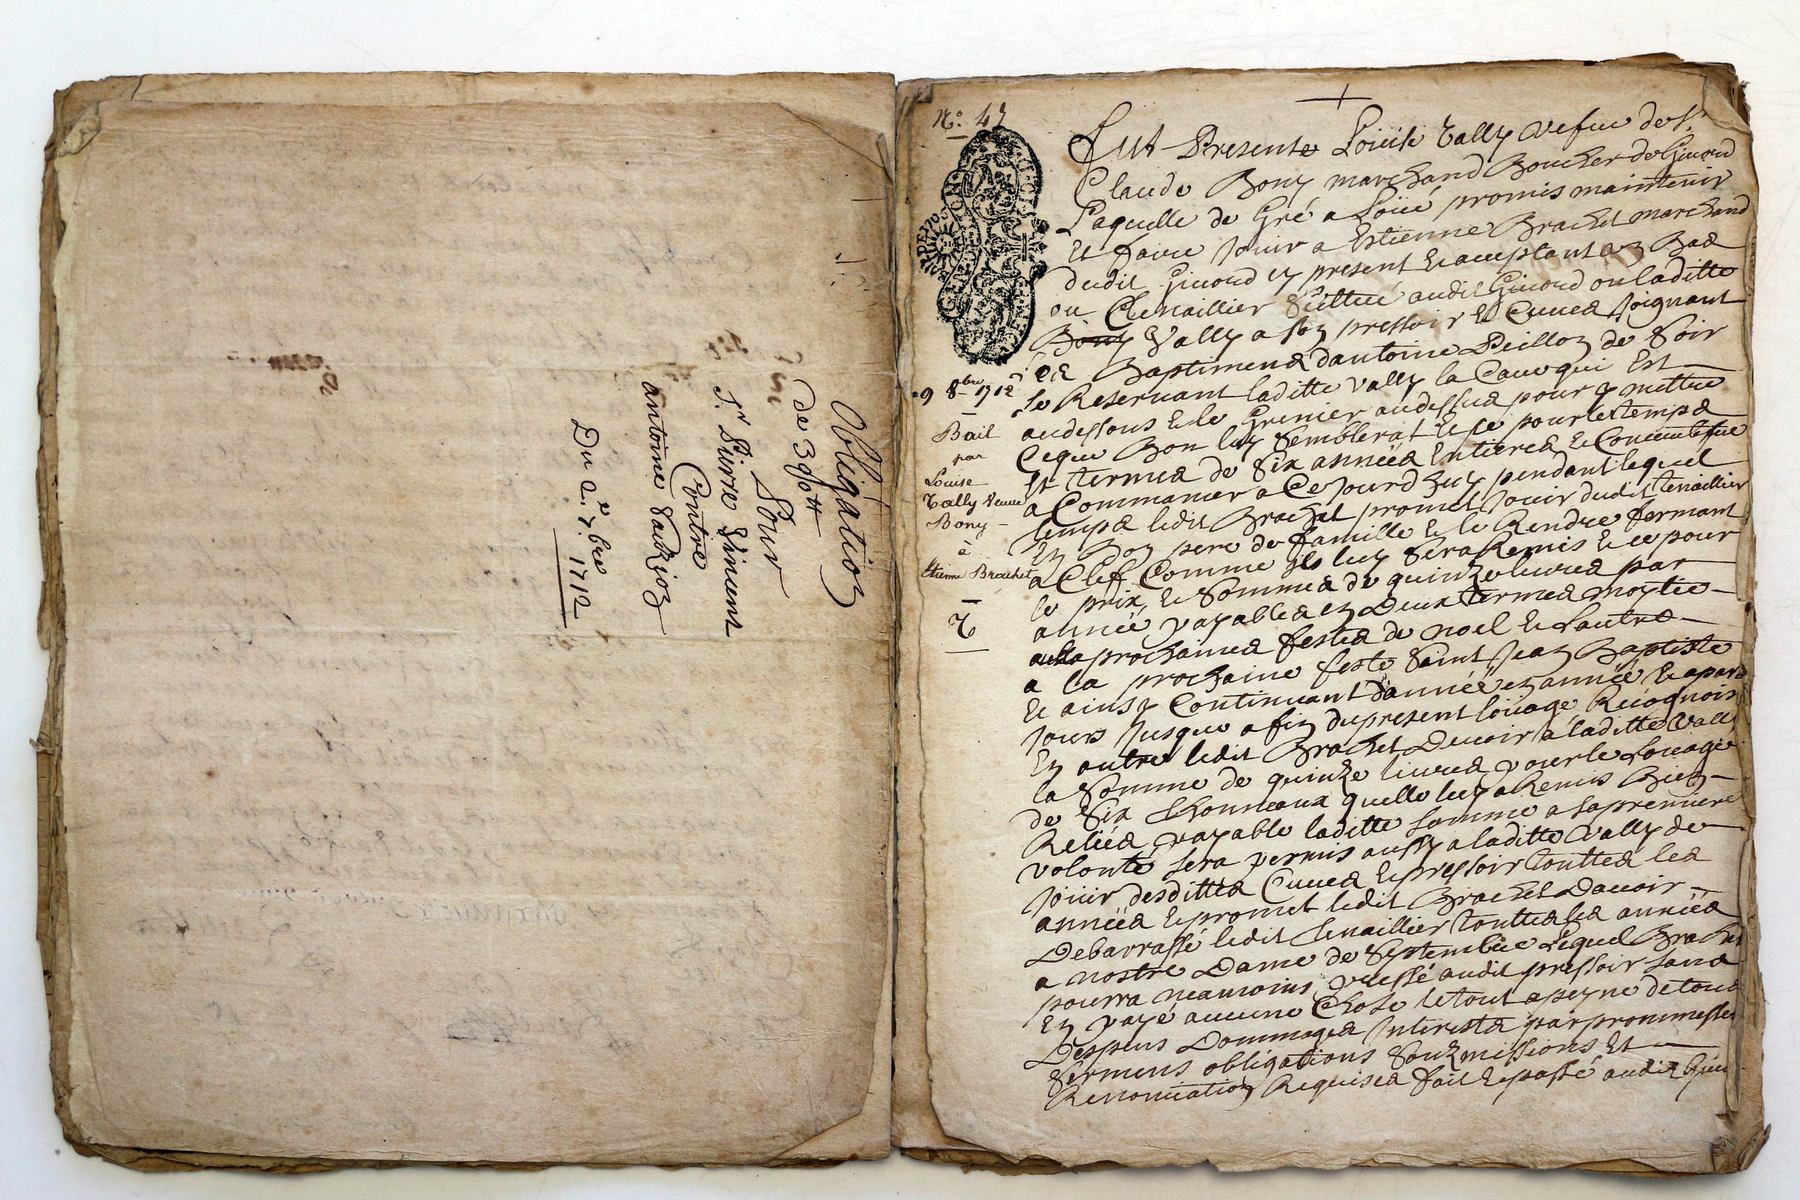 Obligation
de 39₶
Pour
Sr. Pierre Vincent
Contre
antoine
Du 2e. 7bre 1712
No. 47
GENERALITE
DE LYON
9 8bre 1712
Bail
par
Louise
Vally veuve
Bony
à
Etienne Brachet
Fut Presente Loüise Vally vefue de Sr.
Claude Bony marchand Boucher de Giuord
Laquelle de Gré a Loüé promis maintenir
Et faire Jouir a Estienne Brachet marchand
dudit Giuord ey present & acceptant Un Bas
ou Chenaillier Scittué audit Giuord ou laditte
Bony Vally a son pressoir Et Cuues Joignant
Les Bastimens dantoine Peilloy de Soir
Se Reseruant laditte Vally la Caue qui Est
audessous & le Grenier audessus pour y mettre
Ceque Bon luy Semblerat & ce pour le temps
Et termes de Six années Entieres & Consecutifue
a Commancer a Cejourdhuy pendant lequel
temps ledit Brachet promet Jouir dudit tenaillier
En Boy pere de famille & le Rendre fermant
a Clef Comme Il luy Sera Remis & ce pour
le prix & Somme de quinze liures par
année payables ey Deux termes moytié
aux prochaines festes de noel & Lautre
a la prochaine feste Saint Jean Baptiste
& ainsy Continuant dannée ey année &
Jours Jusque a fin dupresent loüage Recognois
Ey outre ledit Brachet Deuoir a laditte Vally
la Somme de quinze liures pour le Loüage
de Six thonneaux quelle luy a Remis Biey
Reliés payable laditte somme a sa premiere
volonté sera permis aussy a laditte Vally de
Jouir desdittes Cuues & pressoir touttes les
années & promet ledit Brachet Dauoir
Debarrassé ledit tenaillier touttes les années
a nostre Dame de Septembre Lequel Brachet
pourra neamoins audit pressoir sans
Ey payé aucune Chose le tout a peyne de tous
Despens Dommages Interests par prommesses
Sermens obligations Soubzmissions Et
Renonciatioy Requises fait & passé audit Giuord